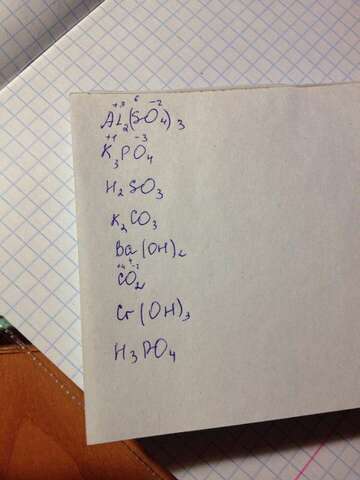 +3 6 -2
Al₂(SO₄)₃
+1 -3
K₃PO₄
H₂SO₃
K₂CO₃
Ba(OH)₂
+4 -2
CO₂
Cr(OH)₃
H₃PO₄